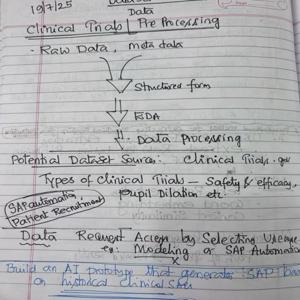 19/7/25
Dataset
Data
Clinical Trials | Pre Processing
- Raw Data, meta data
Structured form
EDA
Data Processing
Potential Dataset Source: Clinical Trials.gov
Types of Clinical Trials - Safety & efficacy,
pupil Dilation etc.
SAP automation
Patient Recruitment
Data Request Access by Selecting Usecase
eg: Modeling or SAP Automation
x
Build an AI prototype that generates SAP based
on historical clinical